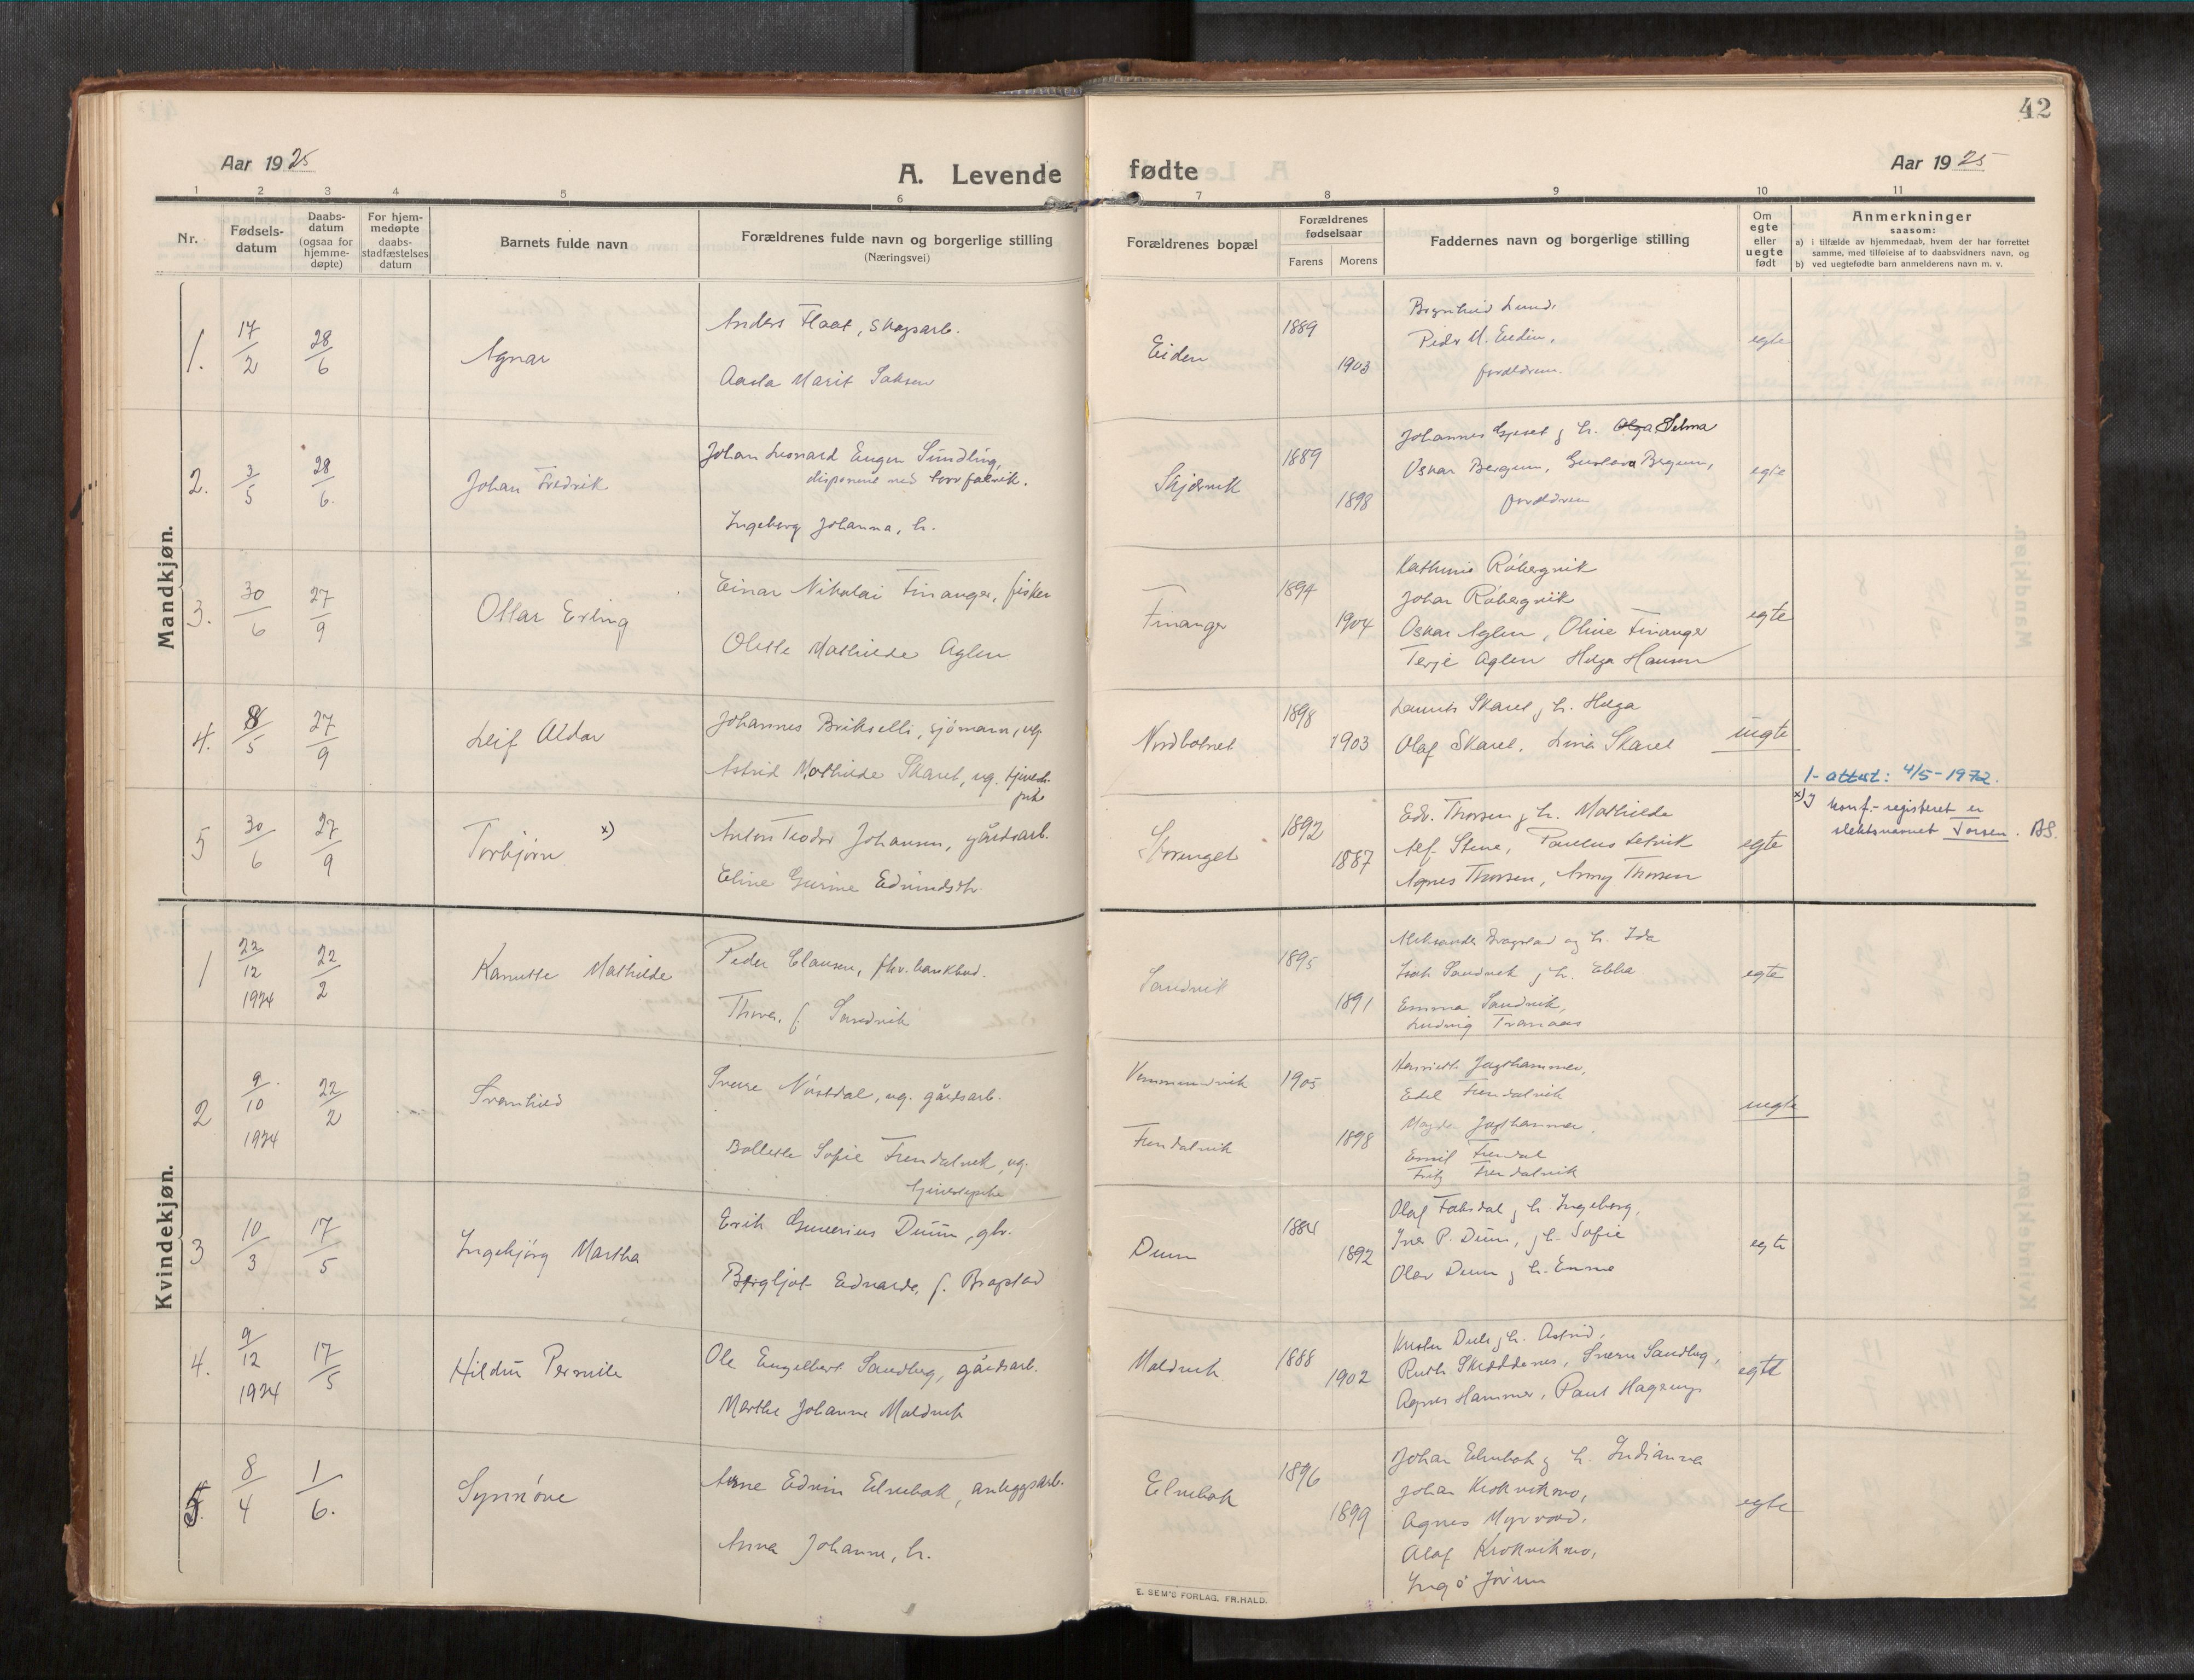 42
Aar 1925
A. Levende fødte
Aar 1925
1 2 3 4 5 6 7 8 9 10 11
Nr.
Fødsels-
datum
Daabs-
datum
(ogsaa for
hjemme-
døpte)
For hjem-
medøpte
daabs-
stadfæstelses
datum
Barnets fulde navn
Forældrenes fulde navn og borgerlige stilling
(Næringsvei)
Forældrenes bopæl
Forældrenes
fødselsaar
Farens Morens
Faddernes navn og borgerlige stilling
Om
egte
eller
uegte
født
Anmerkninger
saasom:
a) i tilfælde av hjemmedaab, hvem der har forrettet
samme, med tilføielse af to daabsvidners navn, og
b) ved uegtefødte barn anmelderens navn m. v.
Mandkjøn.
1. 17/2 28/6 Agnar
Anders Flaat, skogsarb.
Aasta Marit
Eiden 1889 1903
Lund,
Peder M. Eiden,
forældrene.
egte
2. 3/5 28/6. Johan Fredrik
Johan Leonard Eugen Sundling,
disponent ved torvfabrik.
Ingeborg Johanna, h.
Skjærvik 1889 1898
Johannes j h. Olga Selma
Oskar Bergum, Gustava Bergum,
forældrene
egte
3. 30/6 27/9 Ottar Erling
Einar Nikolai Finanger, fisker
Olette Mathilde Aglen
Finanger 1894 1904
Kathrine Råbergvik
Johan Råbergvik
Oskar Aglen, Oline Finanger
Terje Aglen Helga Hansen
egte
4. 8/5 27/9 Leif Aldar
Johannes Brikselli, sjömann, ug.
Astrid Mathilde Skaret, ug. tjeneste-
pike
Nordbotnet 1898 1903
Laurits Skaret j h. Helga
Olaf Skaret, Lina Skaret
uegte
5 30/6 27/9 Torbjørn x)
Anton Teodor Johansen, gårdsarb.
Eline Gurine Edvindsdtr.
1892 1887
Edv. Thorsen j h. Mathilde
Alf Stene, Paulus Setvik
Agnes Thorsen, Anny Thorsen
egte
1- attest: 4/5-1972.
x) J konf.-registeret er
slektsnavnet Torsen. AS.
Kvindekjøn.
1 22/12 1924 22/2 Kanutte Mathilde
Peder Clausen, fhv. bankbud.
Thora, f. Sandvik
Sandvik 1895 1891
Aleksander Bragstad og h. Ida
Sandvik j h. Ebba
Emma Sandvik,
Ludvig Tranaas
egte
2 9/10 1924 22/2 Svanhild
Sverre Nústdal, ug. gårdsarb.
Bollette Sofie Frendalvik, ug.
tjenestepike
Vemmundvik 1905
Frendalvik 1898
Henriette Jagthammer,
Edel Frendalvik
Magda Jagthammer,
Emil Frendal
Fritz Frendalvik
uegte
3 10/3 17/5 Ingebjörg Martha
Erik Gunerius Duun, gbr.
Bergljot Edvarda, f. Bragstad
Duun 1884 1892
Olaf j h. Ingeborg,
Iver P. Duun, j h. Sofie
Olav Duun j h. Emma
egte
4. 9/12 1924 17/5 Hildur Pernille
Ole Engelbert Sandberg, gårdsarb.
Marthe Johanne Maldvik
Maldvik 1888 1902
j h. Astrid,
Ruth Sverre Sandberg,
Agnes Hammer, Paul Hagerup
egte
5. 8/4 1/6. Synnöve
Arne Edvin Elvebak, anleggsarb.
Anna Johanne, h.
Elvebak 1896 1899
Johan Elvebak j h. Indianna
Johan Krokvikmo,
Agnes Myrvold,
Olaf Krokvikmo,
Jörum
egte
E. SEM'S FORLAG, FR.HALD.